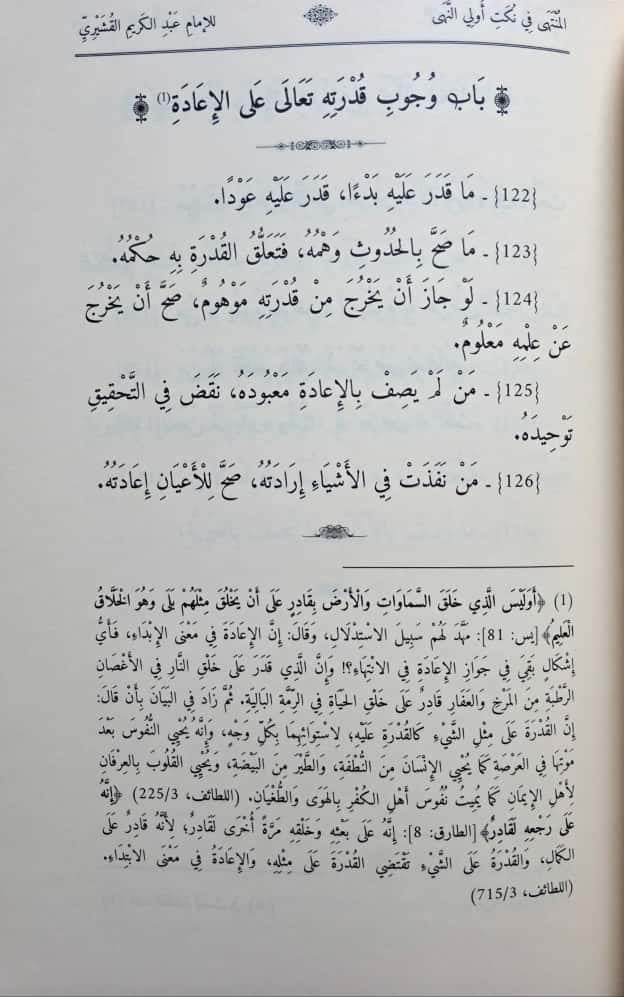 المُنْتَهَى فِي نُكَتِ أُولِي النُّهَى
للإمامِ عَبْدِ الكَرِيمِ القُشَيْرِيِّ
بَابُ وُجُوبِ قُدْرَتِهِ تَعَالَى عَلَى الإِعَادَةِ(1)
{122} ـ مَا قَدَرَ عَلَيْهِ بَدْءًا، قَدَرَ عَلَيْهِ عَوْدًا.
{123} ـ مَا صَحَّ بِالحُدُوثِ وَهْمُهُ، فَتَعَلُّقُ القُدْرَةِ بِهِ حُكْمُهُ.
{124} ـ لَوْ جَازَ أَنْ يَخْرُجَ مِنْ قُدْرَتِهِ مَوْهُومٌ، صَحَّ أَنْ يَخْرُجَ
عَنْ عِلْمِهِ مَعْلُومٌ.
{125} ـ مَنْ لَمْ يَصِفْ بِالإِعَادَةِ مَعْبُودَهُ، نَقَضَ فِي التَّحْقِيقِ
تَوْحِيدَهُ.
{126} ـ مَنْ نَفَذَتْ فِي الأَشْيَاءِ إِرَادَتُهُ، صَحَّ لِلْأَعْيَانِ إِعَادَتُهُ.
(1) ﴿أَوَلَيْسَ الَّذِي خَلَقَ السَّمَاوَاتِ وَالْأَرْضَ بِقَادِرٍ عَلَى أَنْ يَخْلُقَ مِثْلَهُمْ بَلَى وَهُوَ الْخَلَّاقُ
الْعَلِيمُ﴾ [يس: 81]: مَهَّدَ لَهُمْ سَبِيلَ الاسْتِدْلَالِ، وَقَالَ: إِنَّ الإِعَادَةَ فِي مَعْنَى الإِبْدَاءِ، فَأَيُّ
إِشْكَالٍ بَقِيَ فِي جَوَازِ الإِعَادَةِ فِي الانْتِهَاءِ؟! وَإِنَّ الَّذِي قَدَرَ عَلَى خَلْقِ النَّارِ فِي الأَغْصَانِ
الرَّطْبَةِ مِنَ المَرْخِ وَالعَفَارِ قَادِرٌ عَلَى خَلْقِ الحَيَاةِ فِي الرِّمَّةِ البَالِيَةِ. ثُمَّ زَادَ فِي البَيَانِ بِأَنْ قَالَ:
إِنَّ القُدْرَةَ عَلَى مِثْلِ الشَّيْءِ كَالقُدْرَةِ عَلَيْهِ؛ لِاسْتِوَائِهِمَا بِكُلِّ وَجْهٍ، وَإِنَّهُ يُحْيِي النُّفُوسَ بَعْدَ
مَوْتِهَا فِي العَرْصَةِ كَمَا يُحْيِي الإِنْسَانَ مِنَ النُّطْفَةِ، وَالطَّيْرَ مِنَ البَيْضَةِ، وَيُحْيِي القُلُوبَ بِالعِرْفَانِ
لِأَهْلِ الإِيمَانِ كَمَا يُمِيتُ نُفُوسَ أَهْلِ الكُفْرِ بِالهَوَى وَالطُّغْيَانِ. (اللطائف، 225/3) ﴿إِنَّهُ
عَلَى رَجْعِهِ لَقَادِرٌ﴾ [الطارق: 8]: إِنَّهُ عَلَى بَعْثِهِ وَخَلْقِهِ مَرَّةً أُخْرَى لَقَادِرٌ؛ لِأَنَّهُ قَادِرٌ عَلَى
الكَمَالِ، وَالقُدْرَةُ عَلَى الشَّيْءِ تَقْتَضِي القُدْرَةَ عَلَى مِثْلِهِ، وَالإِعَادَةُ فِي مَعْنَى الابْتِدَاءِ.
(اللطائف، 715/3)